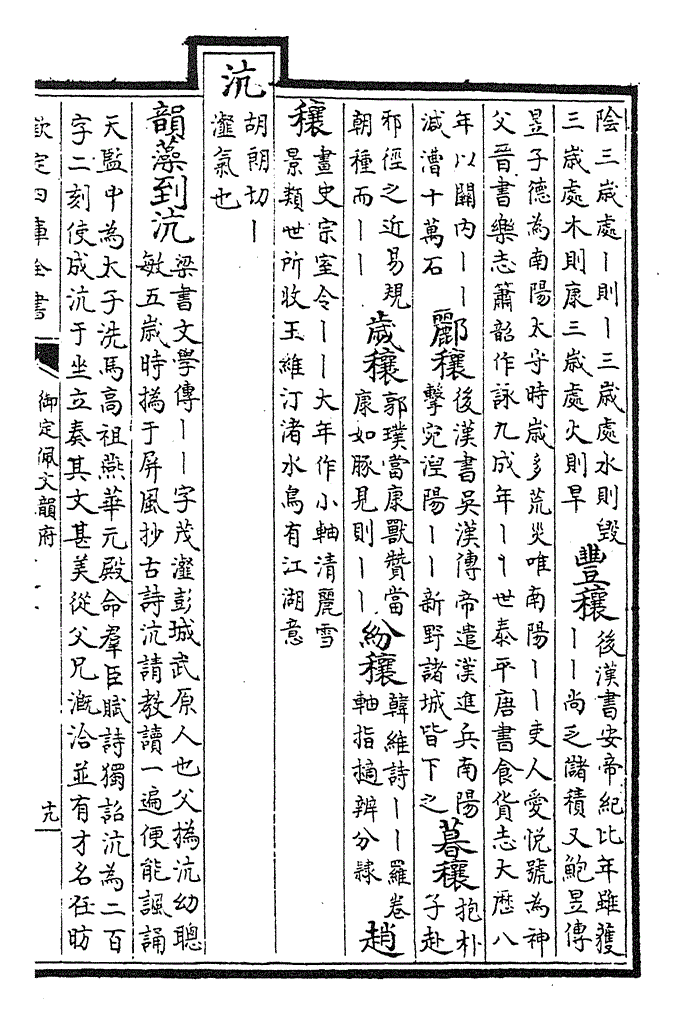 陰三歲處丨則丨三歲處水則毀
三歲處木則康三歲處火則旱
豐穰
後漢書安帝紀比年雖獲
丨丨尚乏儲積又鮑昱傳
昱子德為南陽太守時歲多荒災唯南陽丨丨吏人愛悅號為神
父晉書樂志簫韶作詠九成年丨丨世泰平唐書食貨志大歷八
年以關内丨丨
減漕十萬石
酈穰
後漢書吳漢傳帝遣漢進兵南陽
擊宛湼陽丨丨新野諸城皆下之
暮穰
抱朴
子赴
邪徑之近易規
朝種而丨丨
歲穰
郭璞當康獸贊當
康如豚見則丨丨
紛穰
韓維詩丨丨羅卷
軸指擿辨分隷
趙
穰
畫史宗室令丨丨大年作小軸清麗雪
景類世所收王維汀渚水鳥有江湖意
沆
胡朗切丨
瀣氣也
韻藻到沆
梁書文學傳丨丨字茂瀣彭城武原人也父撝沆幼聰
敏五歲時撝于屏風抄古詩沆請教讀一遍便能諷誦
天監中為太子洗馬高祖燕華元殿命羣臣賦詩獨詔沆為二百
字二刻使成沆于坐立奏其文甚美從父兄溉洽並有才名任昉
欽定四庫全書
御定佩文韻府
十九